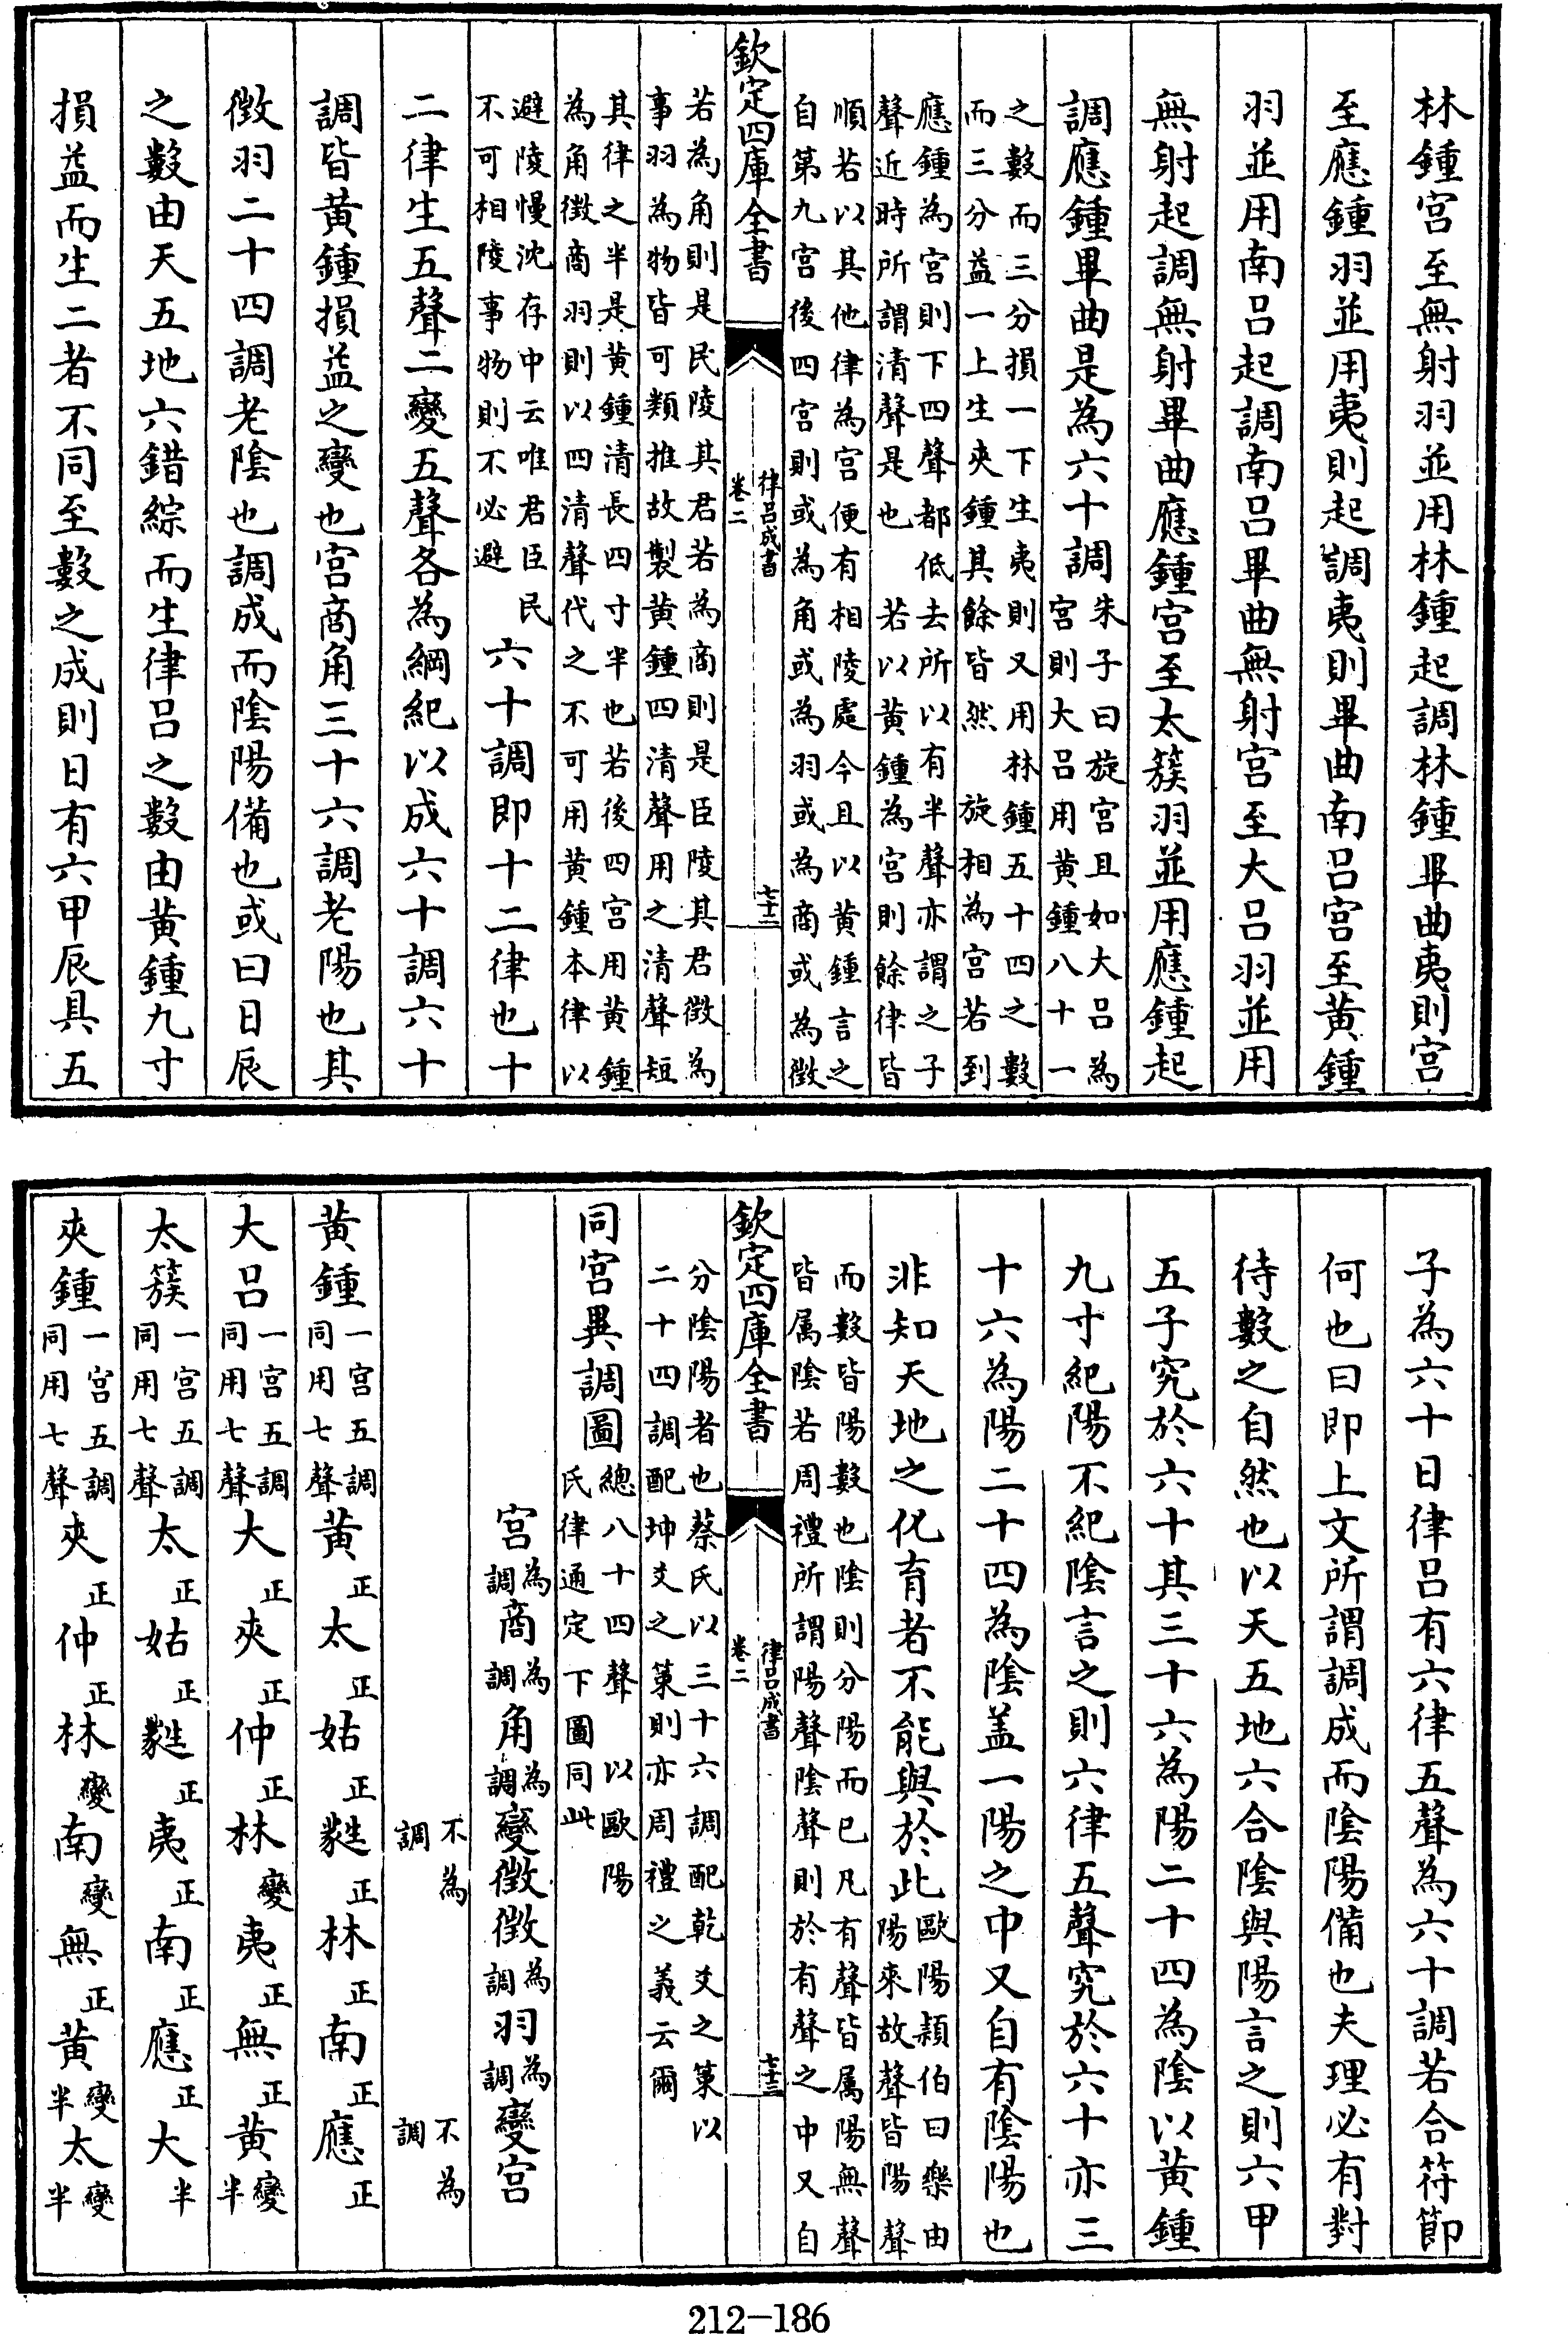 林鍾宫至無射羽並用林鍾起調林鍾畢曲夷則宫
至應鍾羽並用夷則起調夷則畢曲南吕宫至黄鍾
羽並用南吕起調南吕畢曲無射宫至大吕羽並用
無射起調無射畢曲應鍾宫至太簇羽並用應鍾起
調應鍾畢曲是為六十調
朱子曰旋宫且如大吕為
宫則大吕用黄鍾八十一
之數而三分損一下生夷則又用林鍾五十四之數
而三分益一上生夾鍾其餘皆然 旋相為宫若到
應鍾為宫則下四聲都低去所以有半聲亦謂之子
聲近時所謂清聲是也 若以黄鍾為宫則餘律皆
順若以其他律為宫便有相陵處今且以黄鍾言之
自第九宫後四宫則或為角或為羽或為商或為徴
欽定四庫全書
律吕成書
卷二
七十二
若為角則是民陵其君若為商則是臣陵其君徴為
事羽為物皆可類推故製黄鍾四清聲用之清聲短
其律之半是黄鍾清長四寸半也若後四宫用黄鍾
為角徴商羽則以四清聲代之不可用黄鍾本律以
避陵慢沈存中云唯君臣民
不可相陵事物則不必避
六十調即十二律也十
二律生五聲二變五聲各為綱紀以成六十調六十
調皆黄鍾損益之變也宫商角三十六調老陽也其
徴羽二十四調老陰也調成而陰陽備也或曰日辰
之數由天五地六錯綜而生律吕之數由黄鍾九寸
損益而生二者不同至數之成則日有六甲辰具五
子為六十日律吕有六律五聲為六十調若合符節
何也曰即上文所謂調成而陰陽備也夫理必有對
待數之自然也以天五地六合陰與陽言之則六甲
五子究於六十其三十六為陽二十四為陰以黄鍾
九寸紀陽不紀陰言之則六律五聲究於六十亦三
十六為陽二十四為陰盖一陽之中又自有陰陽也
非知天地之化育者不能與於此
歐陽頴伯曰樂由
陽來故聲皆陽聲
而數皆陽數也陰則分陽而已凡有聲皆属陽無聲
皆属陰若周禮所謂陽聲陰聲則於有聲之中又自
欽定四庫全書
律吕成書
卷二
七十三
分陰陽者也蔡氏以三十六調配乾爻之䇿以
二十四調配坤爻之䇿則亦周禮之義云爾
同宫異調圖
總八十四聲 以歐陽
氏律通定下圖同此
宫為調商為調角為調變徴徴為調羽為調變宫
不為調 不為調
黄鍾一宫五調同用七聲黄正太正姑正蕤正林正南正應正
大吕一宫五調同用七聲大正夾正仲正林變夷正無正黄變半
太簇一宫五調同用七聲太正姑正蕤正夷正南正應正大半
夾鍾一宫五調同用七聲夾正仲正林變南變無正黄變半太變半
212-186